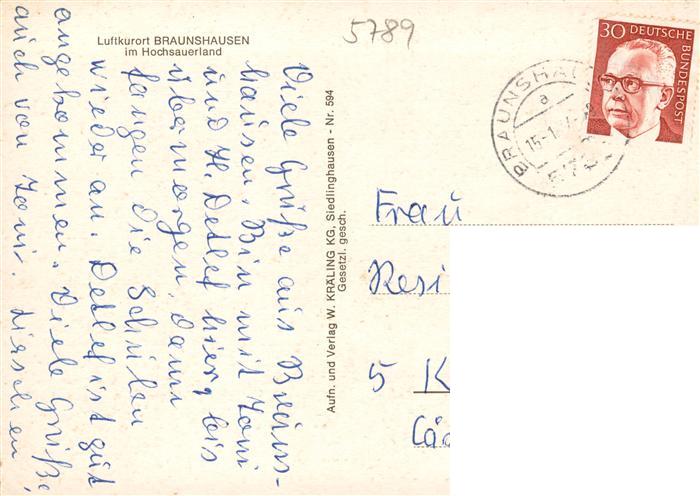 Luftkurort BRAUNSHAUSEN
im Hochsauerland
5789
30 DEUTSCHE BUNDESPOST
BRAUNSHAU
a
15-1.
Viele Grüße aus Brauns-
hausen. Bin mit Toni
und H. Detlef hier, bis
übermorgen, dann
fangen die Schulen
wieder an. Detlef ist gut
angekommen. Viele Grüße,
auch von Toni.
Aufn. und Verlag W. KRÄLING KG. Siedlinghausen - Nr. 594
Gesetzl. gesch.
Frau
Resi
5 K